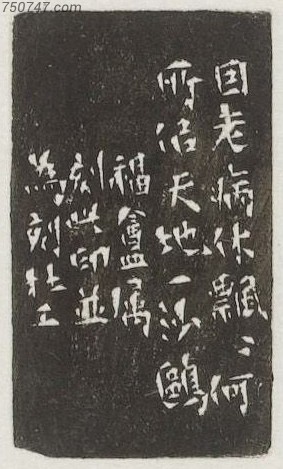 750747.com
因老病休飄〻何
所佀天地一沙鷗
福盦屬
刻此印並
為刻杜工